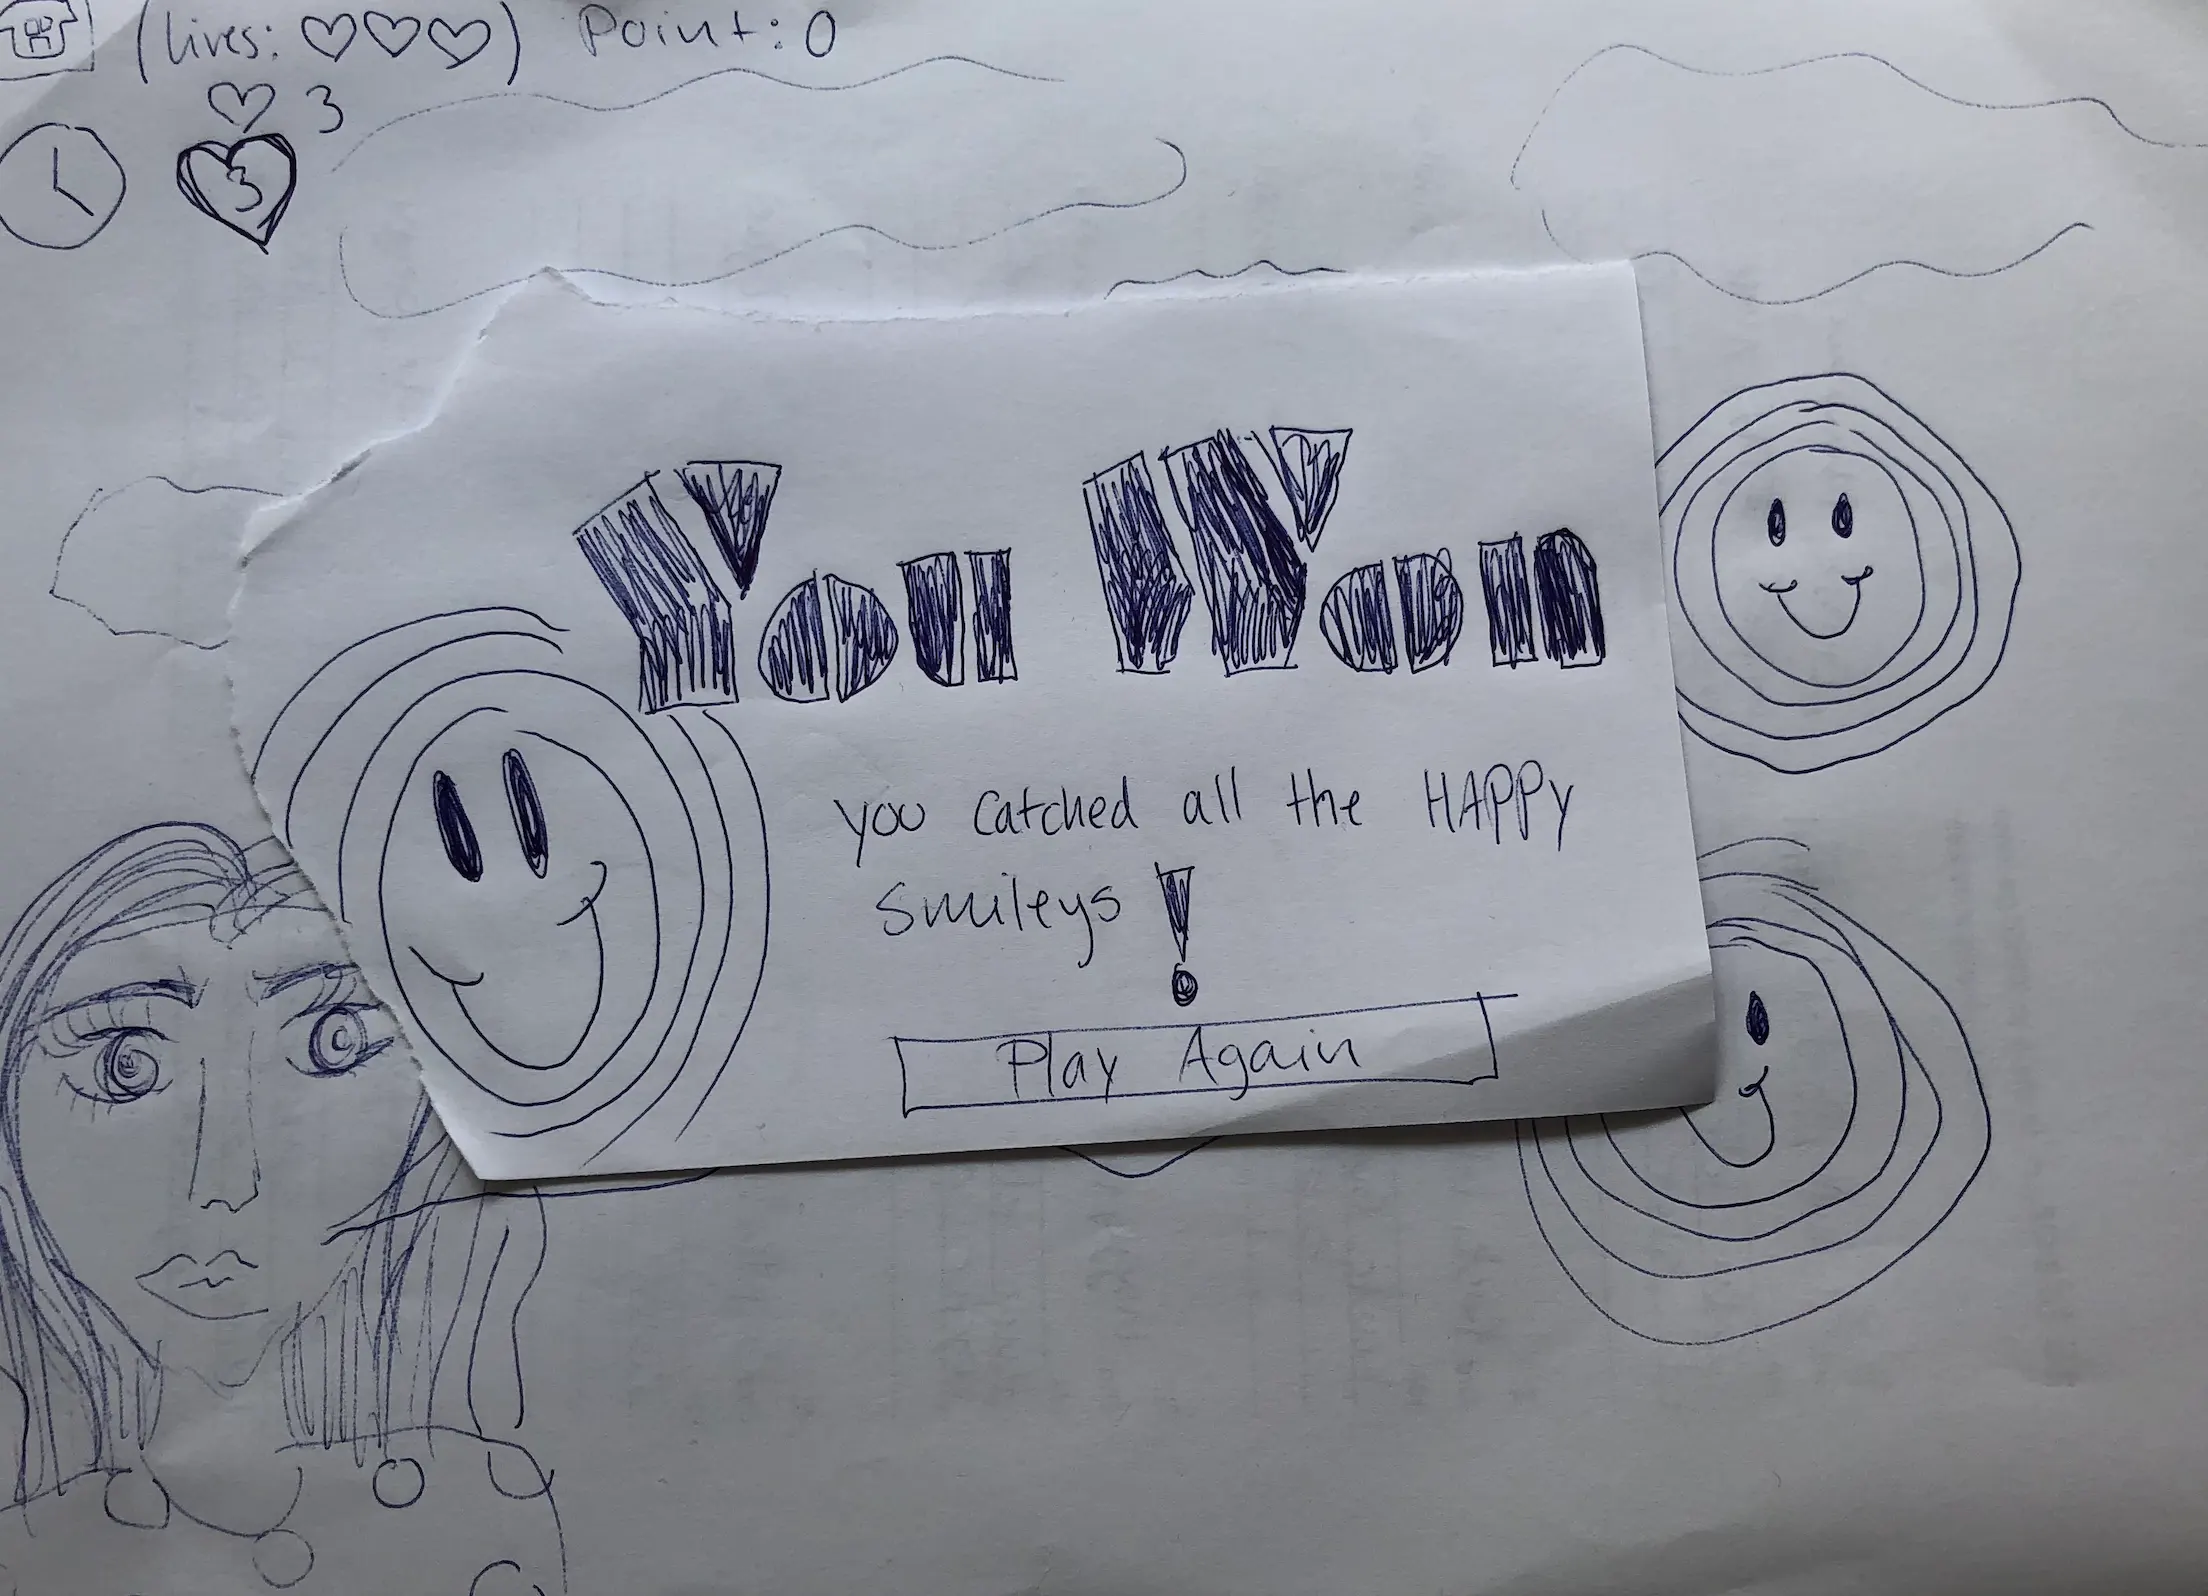 (Lives: ♡♡♡) Point: 0
♡ 3
3
You Won
you catched all the HAPPY
smileys!
Play Again